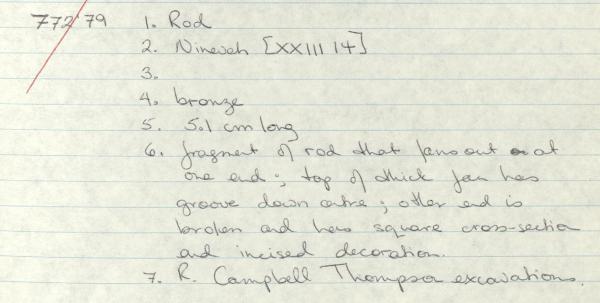 772'79 1. Rod
2. Nineveh [XXIII 14]
3.
4. bronze
5. 5.1 cm long
6. fragment of rod that fans out at
one end; top of thick fan has
groove down centre; other end is
broken and has square cross-section
and incised decoration.
7. R. Campbell Thompson excavations.